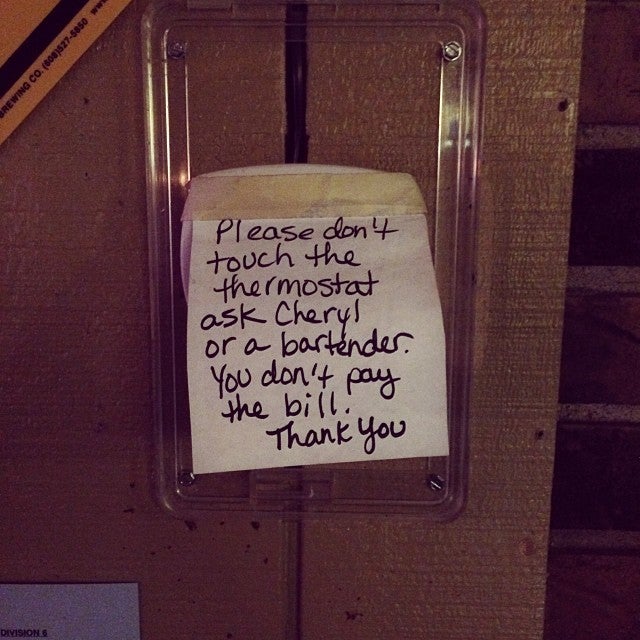 REWING CO. (608)527-5850 ww
Please don't
touch the
thermostat
ask Cheryl
or a bartender.
You don't pay
the bill.
Thank you
DIVISION 6